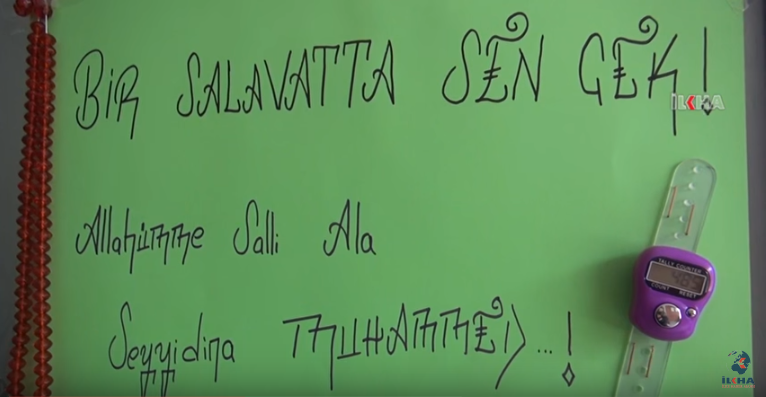 BİR SALAVATTA SEN ÇEK!
İLKHA
Allahümme Salli Ala
TALLY COUNTER
COUNT RESET
Seyyidina MUHAMMED...!
İLKHA